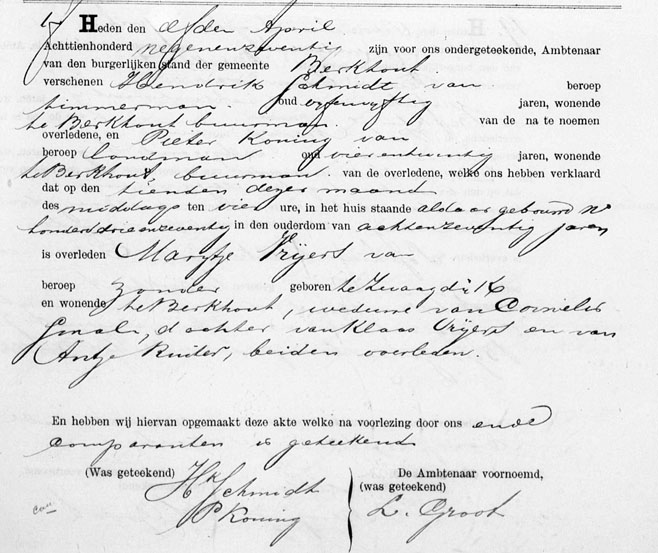 Heden den elfden April
Achttienhonderd negenenzeventig zijn voor ons ondergeteekende, Ambtenaar
van den burgerlijken stand der gemeente Berkhout
verschenen Hendrik Schmidt van beroep
timmerman oud vyfenvyftig jaren, wonende
te Berkhout buurman van de na te noemen
overledene, en Pieter Koning van
beroep landman oud vierentwintig jaren, wonende
te Berkhout, buurman. van de overledene, welke ons hebben verklaard
dat op den tienden dezer maand
des middags ten vier ure, in het huis staande aldaar gebuurd No
honderddrieenzeventig in den ouderdom van achtenzeventig jaren
is overleden Marytje Vrijers van
beroep zonder geboren te Zwaagdijk
en wonende te Berkhout, weduwe van Cornelis
dochter van Klaas Vrijers en van
Antje Ruiter, beiden overleden.
En hebben wij hiervan opgemaakt deze akte welke na voorlezing door ons en de
comparanten is geteekend
(Was geteekend) De Ambtenaar voornoemd,
(was geteekend)
Hk Schmidt
P Koning
L. Groot